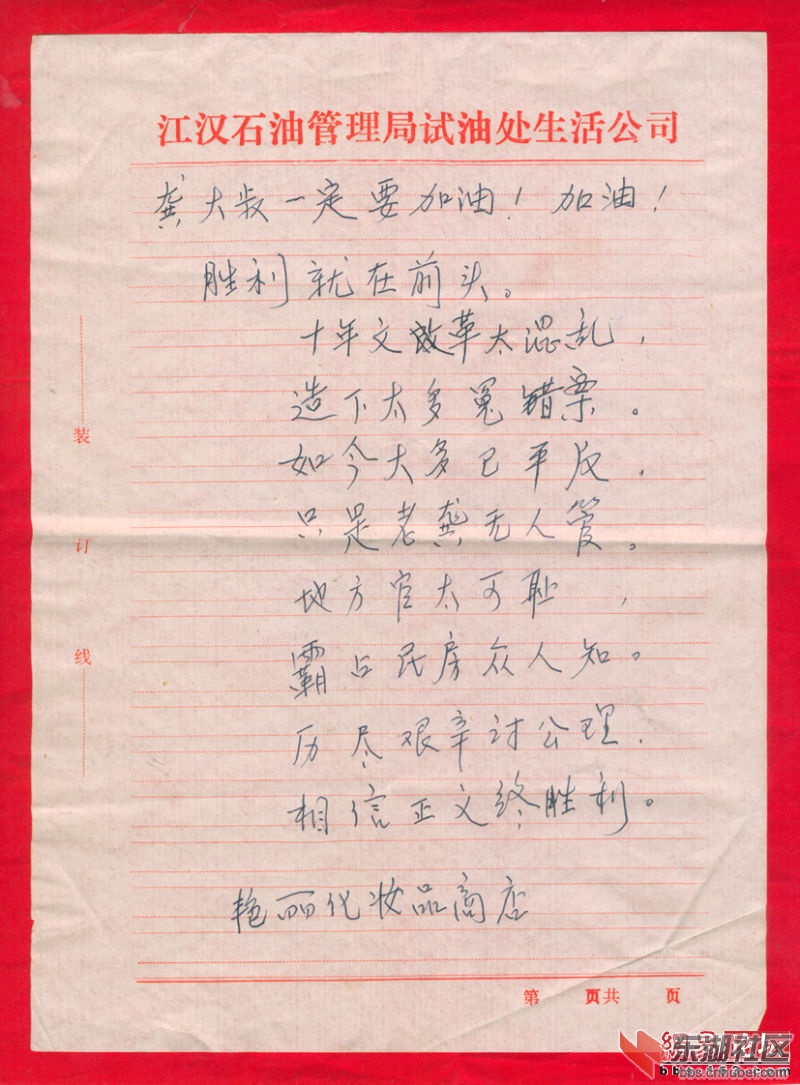 江汉石油管理局试油处生活公司
龚大叔一定要加油！加油！
胜利就在前头。
十年文改革太混乱，
造下太多冤错案。
如今大多已平反，
只是老龚无人管。
地方官太可耻，
霸占民房众人知。
历尽艰辛讨公理，
相信正义终胜利。
艳丽化妆品商店
装
订
线
第 页共 页
东湖社区
bbs.cnhubei.com